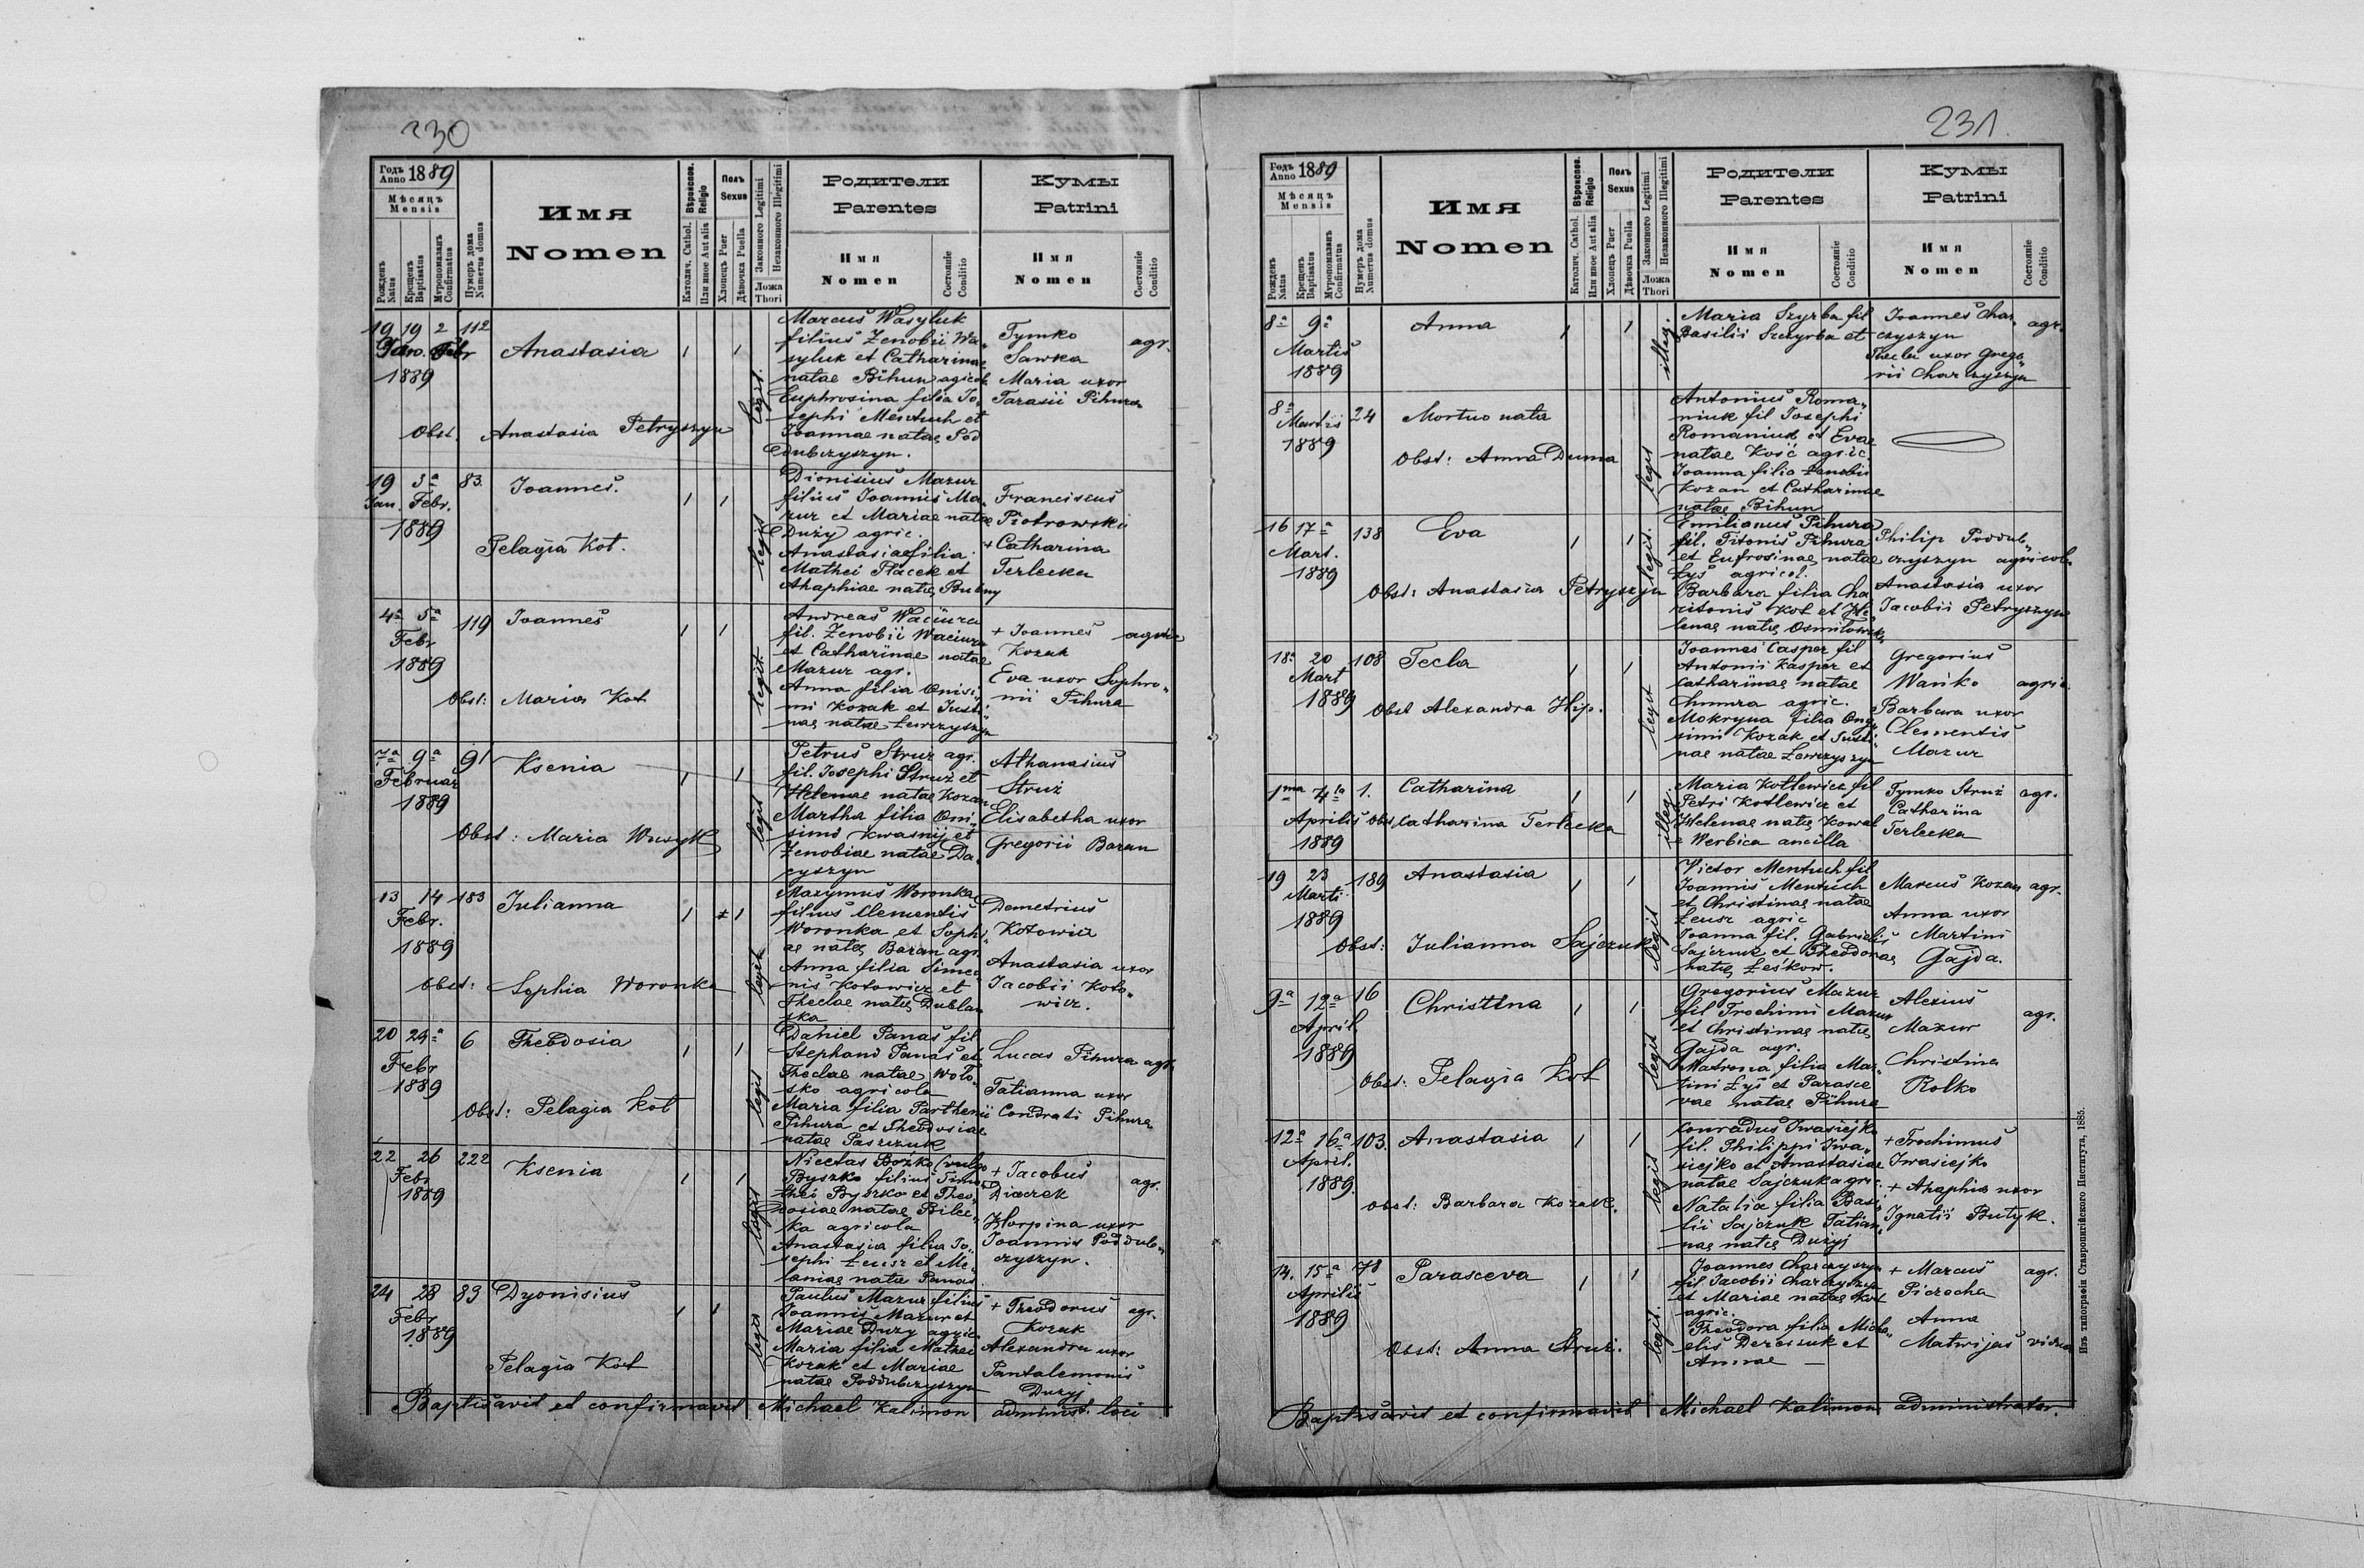 230
Годъ Anno 1889
Мѣсяцъ Mensis
Рожденъ Natus
Крещенъ Baptisatus
Муропомазанъ Confirmatus
Нумеръ дома Numerus domus
Имя
Nomen
Вѣроиспов. Religio
Католич. Cathol.
Или иное Aut alia
Полъ
Sexus
Хлопецъ Puer
Дѣвочка Puella
Законного Legitimi
Незаконного Illegitimi
Ложа
Thori
Родители
Parentes
Имя
Nomen
Состояніе
Conditio
Кумы
Patrini
Имя
Nomen
Состояніе
Conditio
19 19 2 112
Jan. Febr
1889
Anastasia
1 1
legit.
Obst. Anastasia Petryszyn
Marcus Wasyluk
filius Zenobii Wa„
syluk et Catharinae
natae Bihun agicol
Euphrosina filia Jo„
sephi Mentuch et
Joannae natae Pod
dubczyszyn.
Tymko
Sawka
agr.
Maria uxor
Tarasii Pihura
19 3a 83.
Jan. Febr.
1889
Joannes.
1 1
legit
Pelagia Kot.
Dionisius Mazur
filius Joannis Ma„
zur et Mariae natae
Duży agric.
Anastasia filia
Mathei Placek et
Ahaphiae natae Bubny
Franciscus
Piotrowski
+ Catharina
Terlecka
4a 5a 119
Febr
1889
Joannes
1 1
legit.
Obst: Maria Kot
Andreas Waciura
fil. Zenobii Waciura
et Catharinae natae
Mazur agr.
Anna filia Onisi„
mi Kozak et Justi„
nae natae Łewczyszyn
+ Joannes
Kozak
agric
Eva uxor Sophro„
nii Pihura
7a 9a 91
Februar
1889
Ksenia
1 1
legit
Obst: Maria Wasyk
Petrus Struz agr.
fil. Josephi Struz et
Helenae natae Kozan
Martha filia Oni„
simi Kwasnij et
Zenobiae natae Da„
cyszyn
Athanasius
Struż
Elisabetha uxor
Gregorii Baran
13 14 183
Febr.
1889
Julianna
1 1
legit
Obst: Sophia Woronka
Maxymus Woronka
filius Clementis
Woronka et Sophi„
ae natae Baran agr.
Anna filia Simeo
nis Kotowicz et
Theclae natae Dublan
ska
Demetrius
Kotowicz
Anastasia uxor
Jacobii Koto„
wicz.
20 24a 6
Febr
1889
Theodosia
1 1
legit
Obst: Pelagia Kot
Daniel Panas fil
Stephani Panas et
Theclae natae Woło„
sko agricola
Maria filia Parthenii
Pihura et Theodosiae
natae Paszczuk
Lucas Pihura agr.
Tatianna uxor
Condrati Pihura
22 26 222
Febr
1889
Ksenia
1 1
legit
Nicetas Bożko (vulgo
Byszko filius Timo„
thei Byszko et Theo„
dosiae natae Bilec„
ka agricola
Anastasia filia Jo„
sephi Łeusz et Me„
laniae natae Panas
+ Jacobus
Diaczek
agr.
Horpina uxor
Joannis Poddub„
czyszyn.
24 28 83
Febr
1889
Dyonisius
1 1
legit
Pelagia Kot
Paulus Mazur filius
Joannis Mazur et
Mariae Duży agric.
Maria filia Mathei
Kozak et Mariae
natae Poddubczyszyn
+ Theodorus
Kozak
agr.
Alexandra uxor
Pantalemonis
Dużyj
Baptisavit et confirmavit Michael Kalimon administ. loci
231.
Годъ Anno 1889
Мѣсяцъ Mensis
Рожденъ Natus
Крещенъ Baptisatus
Муропомазанъ Confirmatus
Нумеръ дома Numerus domus
Имя
Nomen
Вѣроиспов. Religio
Католич. Cathol.
Или иное Aut alia
Полъ
Sexus
Хлопецъ Puer
Дѣвочка Puella
Законного Legitimi
Незаконного Illegitimi
Ложа
Thori
Родители
Parentes
Имя
Nomen
Состояніе
Conditio
Кумы
Patrini
Имя
Nomen
Состояніе
Conditio
8a 9a
Martis
1889
Anna
1 1
illeg.
Maria Szyrba fil
Basilii Szczyrba et
Joannes Char„
czyszyn
agr.
Thecla uxor Grego„
rii Charczyszyn
8a 24
Martis
1889
Mortuo nata
legit
Obst: Anna Duma
Antonius Roma„
niuk fil Josephi
Romaniuk et Evae
natae Kość agric.
Joanna filia Zenobii
Kozan et Catharinae
natae Bihun
16 17a 138
Mart.
1889
Eva
1 1
legit.
Obst: Anastasia Petryszyn
Emilianus Pihura
fil. Titonis Pihura
et Eufrosinae natae
Łyś agricol.
Barbara filia Cha
ritonis Kot et He„
lenae natae Osmiłowska
Philip Poddub„
czyszyn agricol.
Anastasia uxor
Jacobii Petryszyn
18a 20 108
Mart
1889
Tecla
1 1
legit
Obst Alexandra Hip.
Joannes Casper fil
Antonii Kasper et
Catharinae natae
Chmura agric.
Mokryna filia Ony„
simi Kozak et Justi„
nae natae Łewczyszyn
Gregorius
Wańko
agric.
Barbara uxor
Clementis
Mazur
1ma 4ta 1.
Aprilis
1889
Catharina
1 1
illeg.
Obst. Catharina Terlecka
Maria Kotlewicz fil
Petri Kotlewicz et
Helenae natae Kowal
e Werbica ancilla
Tymko Struż agr.
Catharina
Terlecka
19 23 189
Marti
1889
Anastasia
1 1
legit
Obst: Julianna Sajczuk
Victor Mentuch fil
Joannis Mentuch
et Christinae natae
Łeusz agric
Joanna fil. Gabrielis
Sajczuk et Theodorae
natae Łeśkow.
Marcus Kozan agr.
Anna uxor
Martini
Gajda.
9a 12a 16
April
1889
Christina
1 1
legit
Obst: Pelagia Kot
Gregorius Mazur
fil Trochimi Mazur
et Christinae natae
Gajda agr.
Matrona filia Mar„
tini Łyś et Parasce
vae natae Pihura
Alexius
Mazur
agr.
Christina
Rolko
12a 16a 103.
April.
1889.
Anastasia
1 1
legit
Obst: Barbara Kozak.
Conradus Iwasiejko
fil. Philippi Iwa„
siejko et Anastasiae
natae Sajczuk agric.
Natalia filia Basi„
lii Sajczuk Tatian„
nae natae Dużyj
+ Trochimus
Iwasiejko
+ Ahaphia uxor
Ignatii Butyk.
14. 15a 78
Aprilis
1889
Parasceva
1 1
legit.
Obst: Anna Struż.
Joannes Charczyszyn
fil Jacobii Charczyszyn
et Mariae natae Kot
agric.
Theodora filia Micha„
elis Dereszuk et
Annae —
+ Marcus
Piczocha
agr.
Anna
Matwijas vidua
Baptisavit et confirmavit Michael Kalimon administrator.
Изъ типографіи Ставропигійского Института, 1885.